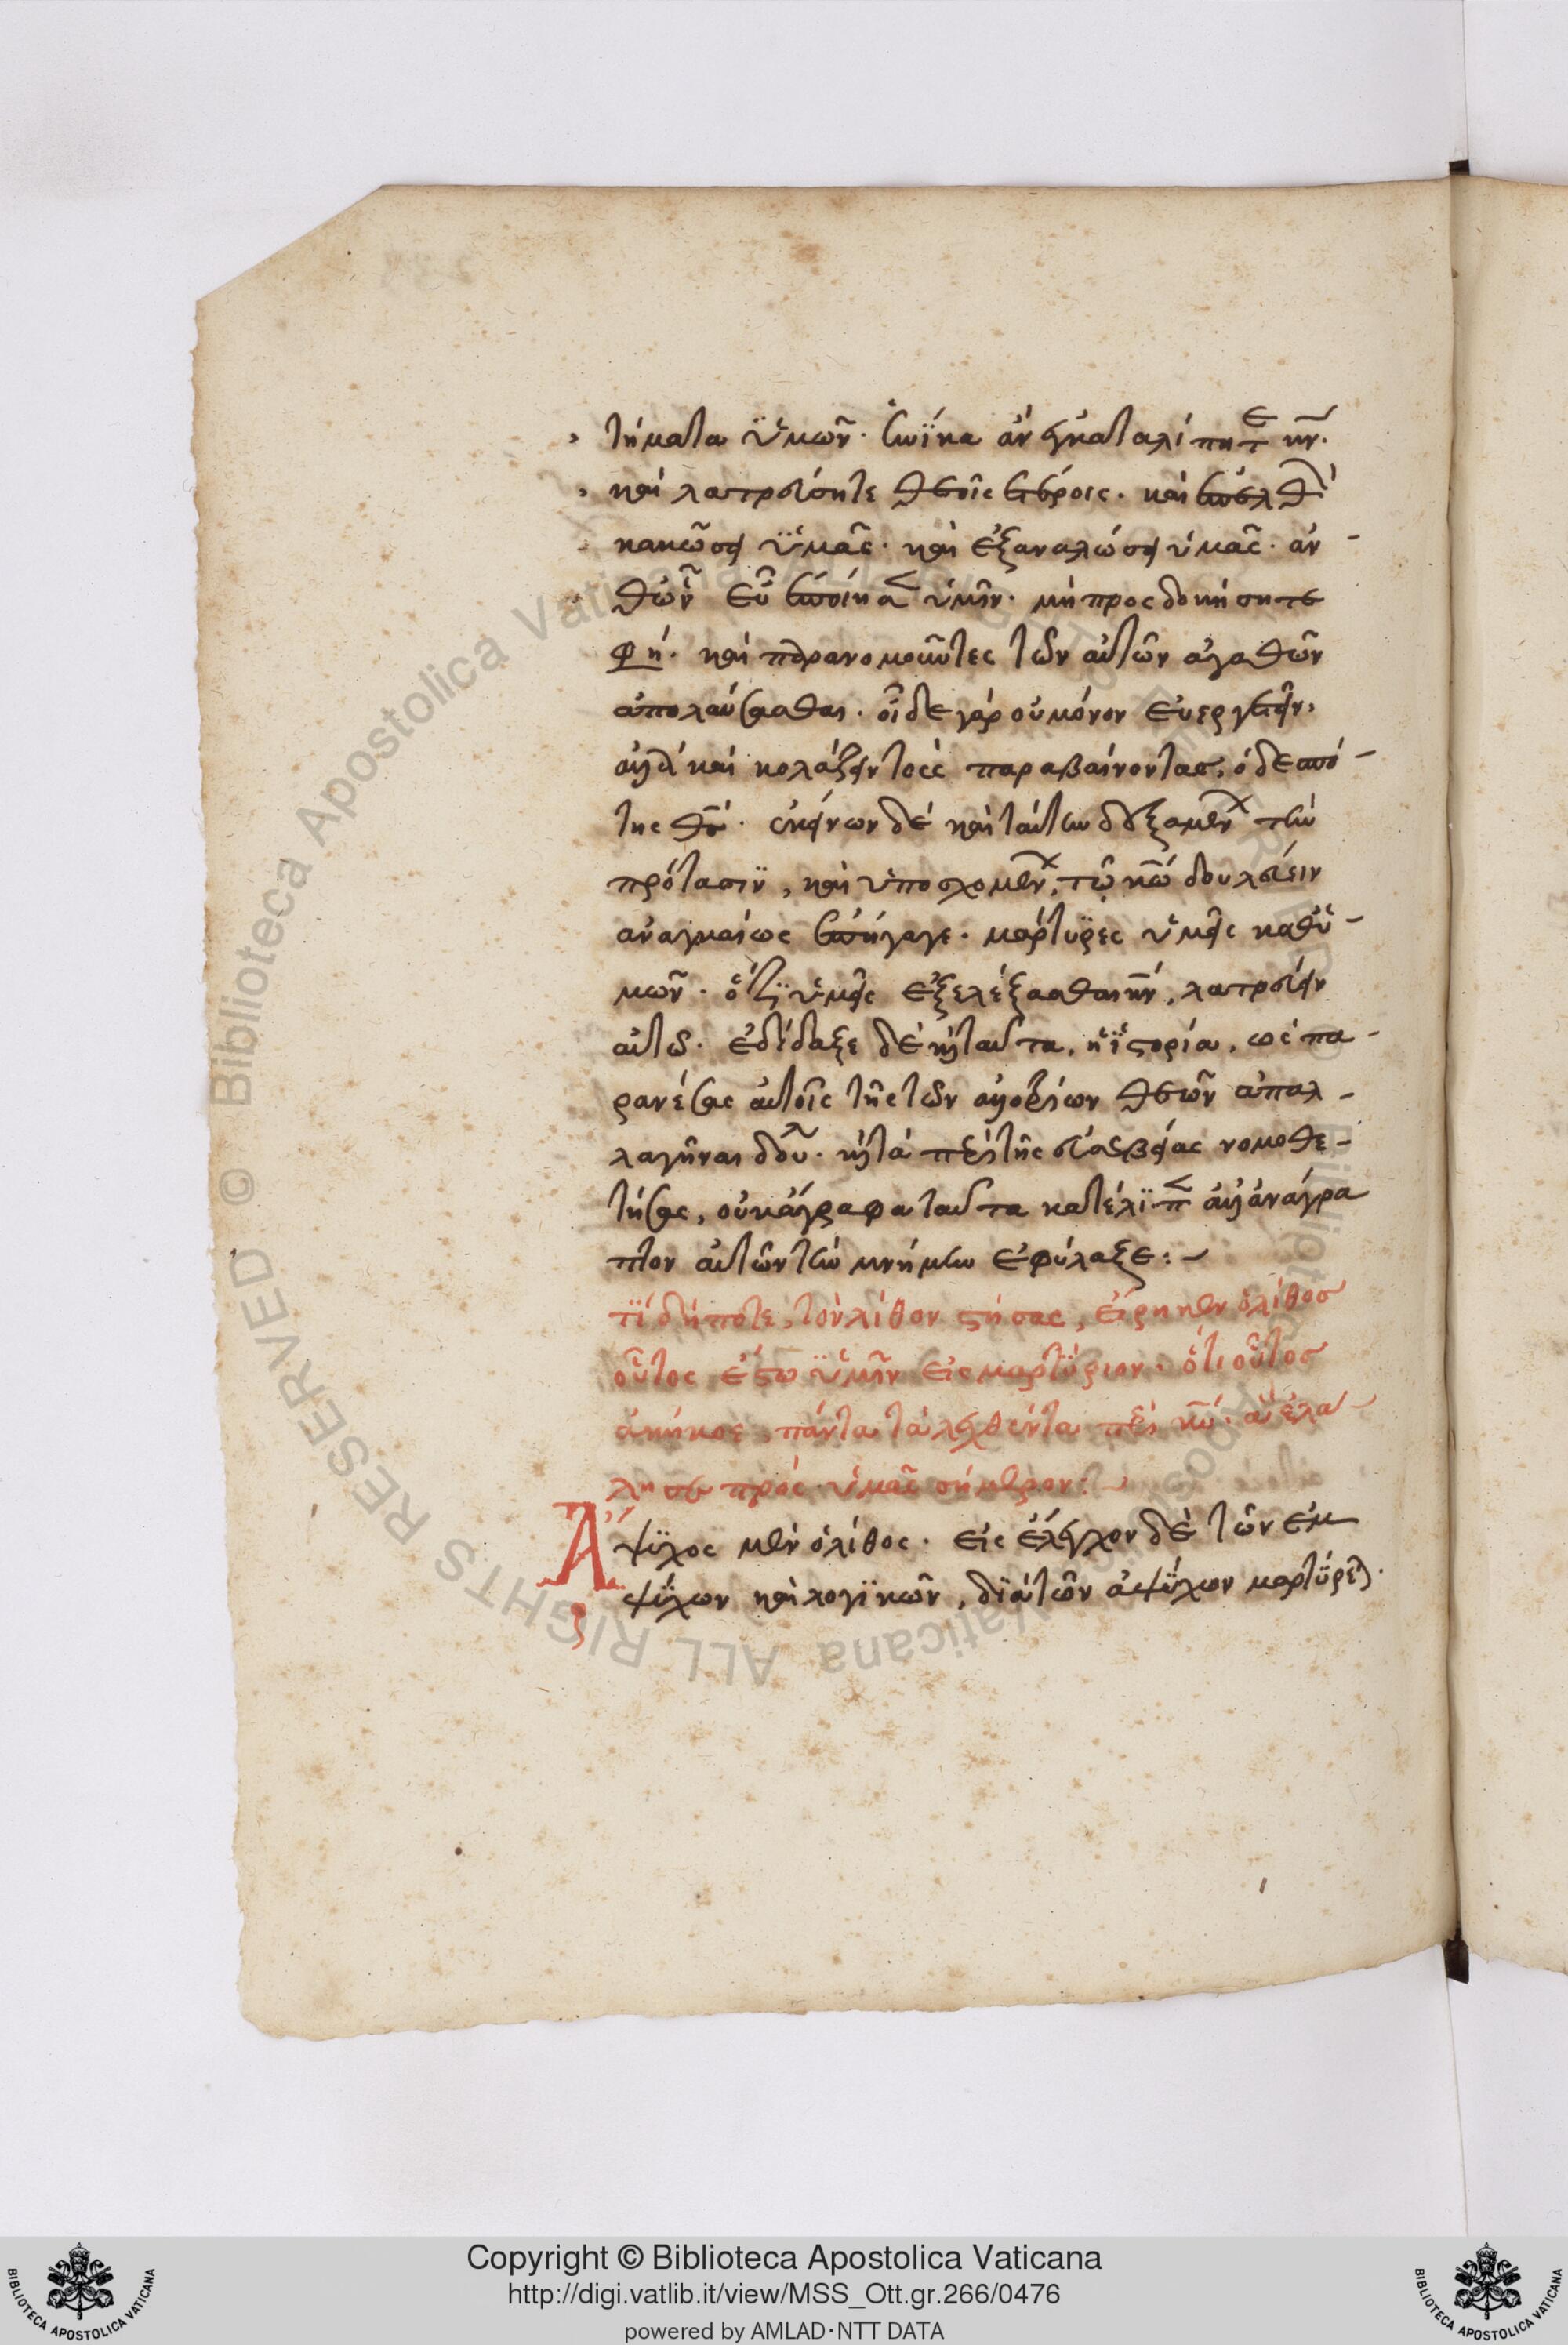 τήματα ὑμῶν· ἡνίκα ἂν ἐγκαταλίπητε κν·
καὶ λατρεύσητε θεοῖς ἑτέροις· καὶ ἐπελθὼν
κακῶσει ὑμᾶς· καὶ ἐξαναλώσει ὑμᾶς· ἀν
θὧν εὖ ἐποίησεν ὑμῖν· μὴ προσδοκήσητε
φη· καὶ παρανομοῦντες τῶν αὐτῶν ἀγαθῶν
ἀπολαύσασθαι· οἶδε γὰρ οὐ μόνον εὐεργετεῖν,
ἀλλὰ καὶ κολάζειν τοὺς παραβαίνοντας, ὁ δεσπό-
της θς· ἐκείνων δὲ καὶ ταύτην δεξαμένων τὴν
πρότασιν, καὶ ὑποσχομένων, τῷ κω δουλεύειν
ἀναγκαίως ἐπήγαγε· μάρτυρες ὑμεῖς καθ ὑ-
μῶν· ὅτι ὑμεῖς ἐξελέξασθαι κν, λατρεύειν
αὐτῶ· ἐδίδαξε δὲ μετὰ ταῦτα, ἡ ἱστορία, ὡς πα-
ραινέσας αὐτοῖς τῆς τῶν ἀλλοτρίων θεῶν ἀπαλ-
λαγῆναι δου· καὶ τὰ περὶ τῆς εὐσεβείας νομοθε-
τήσας, οὐκ ἄγραφα ταῦτα κατέλιπεν ἀλλ ἀνάγρα
πτον αὐτῶν τὴν μνήμην ἐφύλαξε:-
τί δήποτε, τὸν λίθον στήσας, εἴρηκεν ὁ λίθος
οὗτος ἔστω ὑμῖν εἰς μαρτύριον· ὅτι οὗτος
ἀκήκοε, πάντα τὰ λεχθέντα περὶ κυ· ἃ ἐλά-
λησε πρὸς ὑμᾶς σήμερον:
Ἄψυχος μὲν ὁ λίθος· εἰς ἔλεγχον δὲ τῶν ἐμ
ψύχων καὶ λογικῶν, διὰ τῶν ἀψύχων μαρτύρεται·
Copyright © Biblioteca Apostolica Vaticana
http://digi.vatlib.it/view/MSS_Ott.gr.266/0476
powered by AMLAD·NTT DATA